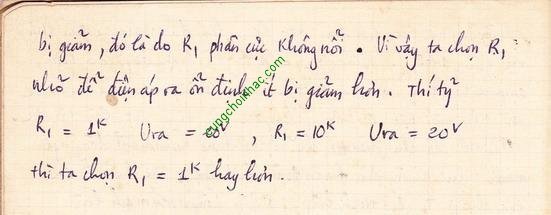 bị giảm, đó là do R₁ phân cực không nổi. Vì vậy ta chọn R₁
nhỏ để điện áp ra ổn định ít bị giảm hơn. Thí tỷ
R₁ = 1ᴷ Ura = ⱽ , R₁ = 10ᴷ Ura = 20ⱽ
thì ta chọn R₁ = 1ᴷ hay hơn.
cungchoinhac.com